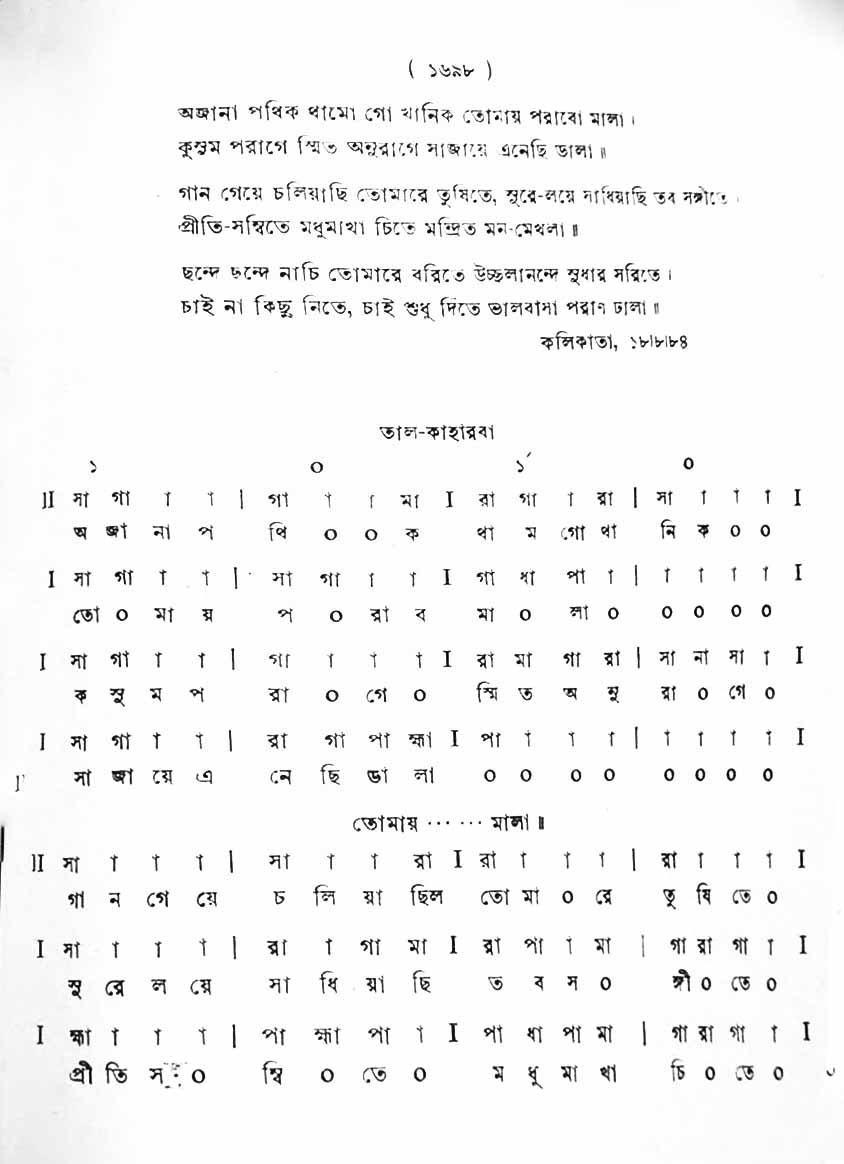 ( ১৬৯৮ )
অজানা পথিক থামো গো খানিক তোমায় পরাবো মালা ।
কুসুম পরাগে স্মিত অনুরাগে সাজায়ে এনেছি ডালা ॥
গান গেয়ে চলিয়াছি তোমারে তুষিতে, সুরে-লয়ে সাধিয়াছি তব সঙ্গীতে ।
প্রীতি-সম্বিতে মধুমাখা চিতে মন্দ্রিত মন-মেখলা ॥
ছন্দে ছন্দে নাচি তোমারে বরিতে উচ্ছলানন্দে সুধার সরিতে ।
চাই না কিছু নিতে, চাই শুধু দিতে ভালবাসা পরাণ ঢালা ॥
কলিকাতা, ১৮৷৮৷৮৪
তাল-কাহারবা
১ ০ ১´ ০
II সা গা া া | গা া া মা I রা গা া রা | সা া া া I
অ জা না প থি ০ ০ ক থা ম গো খা নি ক ০ ০
I সা গা া া | সা গা া া I গা ধা পা া | া া া া I
তো ০ মা য় প ০ রা ব মা ০ লা ০ ০ ০ ০ ০
I সা গা া া | গা া া া I রা মা গা রা | সা না সা া I
ক সু ম প রা ০ গে ০ স্মি ত অ নু রা ০ গে ০
I সা গা া া | রা গা পা হ্মা I পা া া া | া া া া I
সা জা য়ে এ নে ছি ডা লা ০ ০ ০ ০ ০ ০ ০ ০
তোমায় ... ... মালা ॥
II সা া া া | সা া া রা I রা া া া | রা া া া I
গা ন গে য়ে চ লি য়া ছিল তো মা ০ রে তু ষি তে ০
I সা া া া | রা া গা মা I রা পা া মা | গা রা গা া I
সু রে ল য়ে সা ধি য়া ছি ত ব স ০ ঙ্গী ০ তে ০
I হ্মা া া া | পা হ্মা পা া I পা ধা পা মা | গা রা গা া I
প্রী তি স ০ ম্বি ০ তে ০ ম ধু মা খা চি ০ তে ০